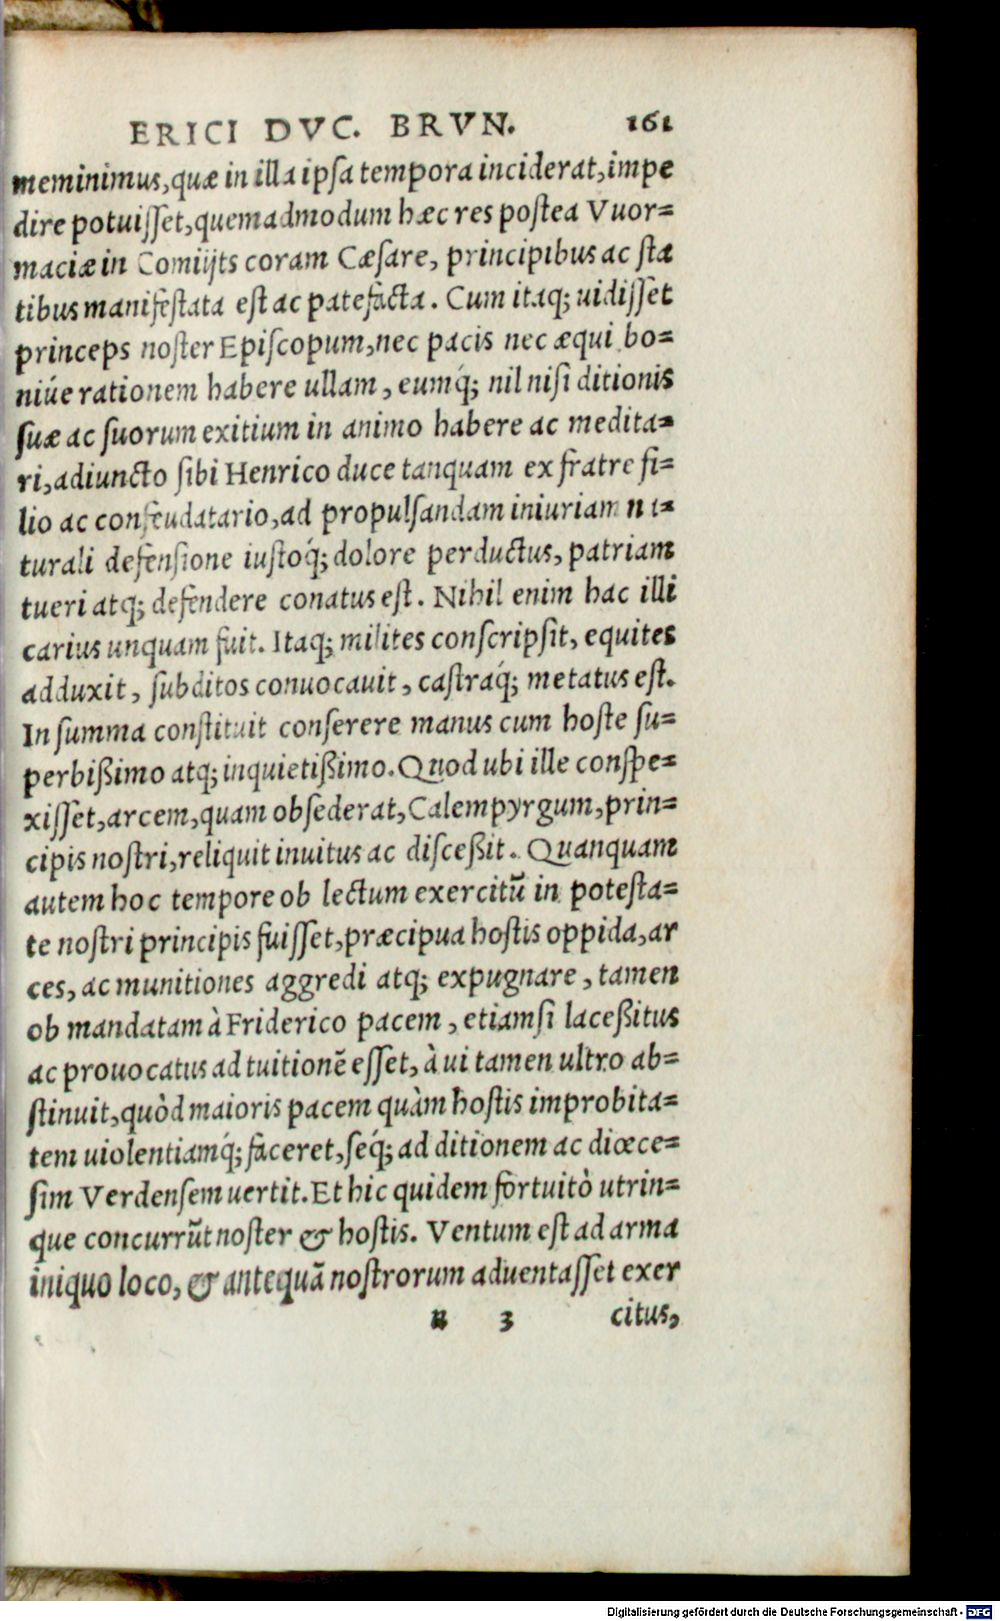 ERICI DVC. BRVN. 161
meminimus, quæ in illa ipſa tempora inciderat, impe
dire potuiſſet, quemadmodum hæc res poſtea Vuor=
maciæ in Comiijs coram Cæſare, principibus ac ſta
tibus manifeſtata eſt ac patefacta. Cum itaq; uidiſſet
princeps noſter Epiſcopum, nec pacis nec æqui bo=
niúe rationem habere ullam, eumq́; nil niſi ditionis
ſuæ ac ſuorum exitium in animo habere ac medita=
ri, adiuncto ſibi Henrico duce tanquam ex fratre fi=
lio ac confeudatario, ad propulſandam iniuriam na=
turali defenſione iuſtoq́; dolore perductus, patriam
tueri atq; defendere conatus eſt. Nihil enim hac illi
carius unquam fuit. Itaq; milites conſcripſit, equites
adduxit, ſubditos conuocauit, caſtraq́; metatus eſt.
In ſumma conſtituit conſerere manus cum hoſte ſu=
perbißimo atq; inquietißimo. Quod ubi ille conſpe=
xiſſet, arcem, quam obſederat, Calempyrgum, prin=
cipis noſtri, reliquit inuitus ac diſceßit. Quanquam
autem hoc tempore ob lectum exercitū in poteſta=
te noſtri principis fuiſſet, præcipua hoſtis oppida, ar
ces, ac munitiones aggredi atq; expugnare, tamen
ob mandatam à Friderico pacem, etiamſi laceßitus
ac prouocatus ad tuitionē eſſet, à ui tamen ultro ab=
ſtinuit, quòd maioris pacem quàm hoſtis improbita=
tem uiolentiamq́; faceret, ſeq́; ad ditionem ac diœce=
ſim Verdenſem uertit. Et hic quidem fortuitò utrin=
que concurrūt noſter & hoſtis. Ventum eſt ad arma
iniquo loco, & antequā noſtrorum aduentaſſet exer
3 citus,
Digitalisierung gefördert durch die Deutsche Forschungsgemeinschaft - DFG